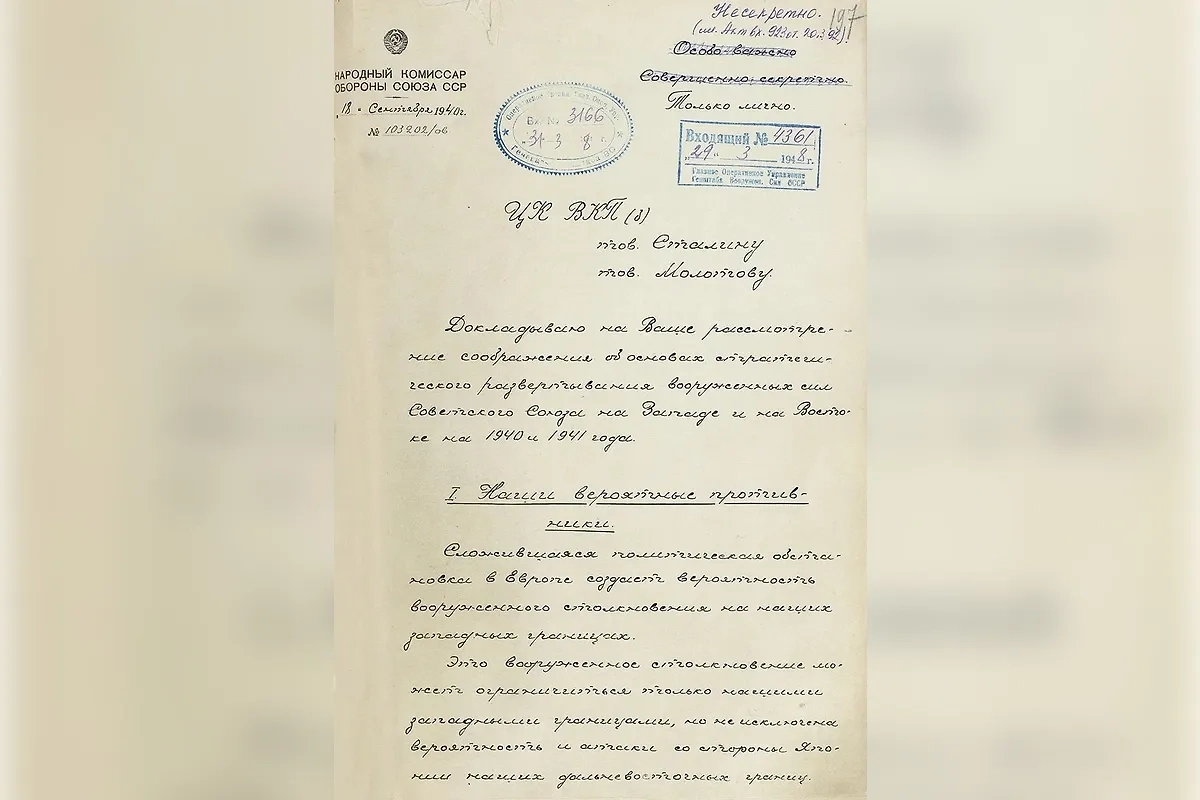 Несекретно. 197
(см. Акт вх. 923 от 20.3.92).
Особо важно
Совершенно секретно.
Только лично.
НАРОДНЫЙ КОМИССАР
ОБОРОНЫ СОЮЗА ССР
„18" Сентября 1940г.
№ 103202/ов
Вх. № 3166
„31" 3 8 г.
Входящий № 4361
„29" 3 1948г.
Главное Оперативное Управление
Генштаба Вооружен. Сил СССР
ЦК ВКП(б)
тов. Сталину
тов. Молотову.
Докладываю на Ваше рассмотре-
ние соображения об основах стратеги-
ческого развертывания вооруженных сил
Советского Союза на Западе и на Восто-
ке на 1940 и 1941 года.
I. Наши вероятные против-
ники.
Сложившаяся политическая обста-
новка в Европе создает вероятность
вооруженного столкновения на наших
западных границах.
Это вооруженное столкновение мо-
жет ограничиться только нашими
западными границами, но не исключена
вероятность и атаки со стороны Япо-
нии наших дальневосточных границ.